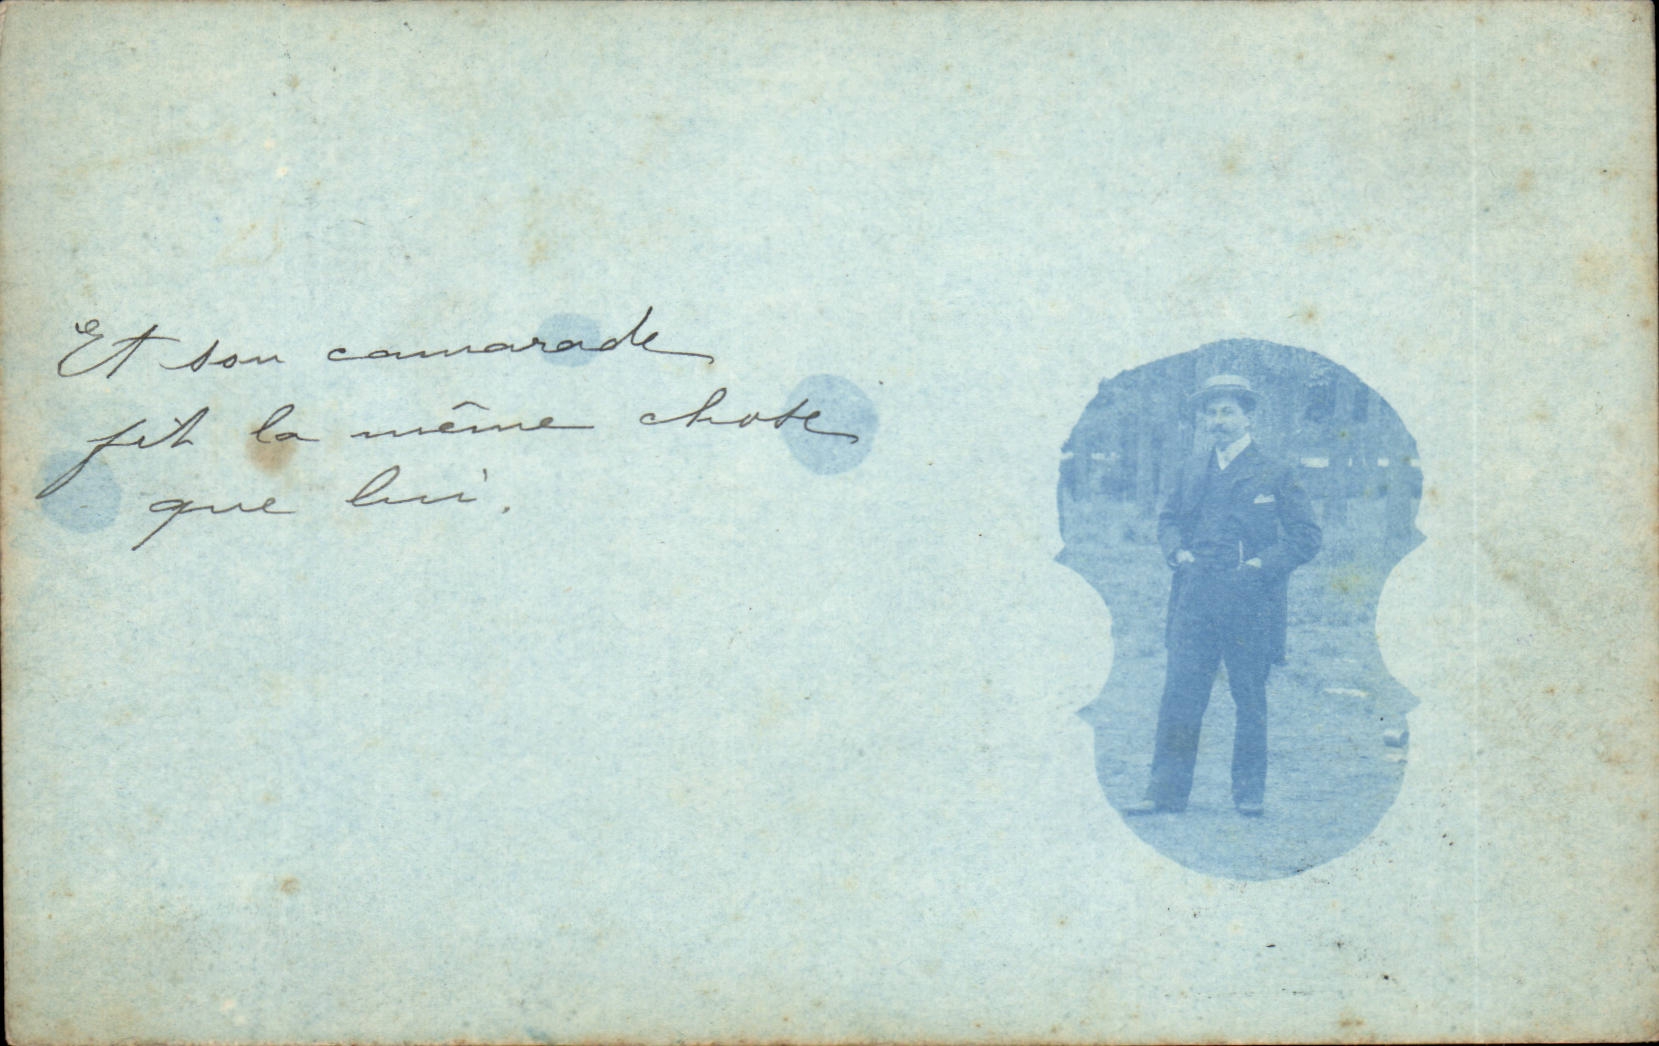 Et son camarade
fit la même chose
que lui.